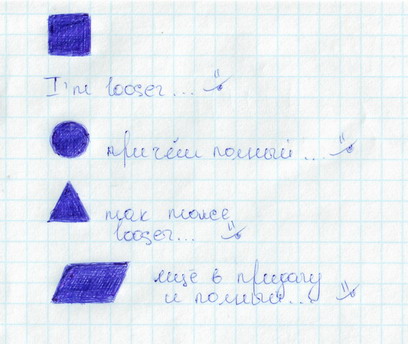 I'm looser...
причём полный...
так тоже
looser...
ищё в придачу
и полный...